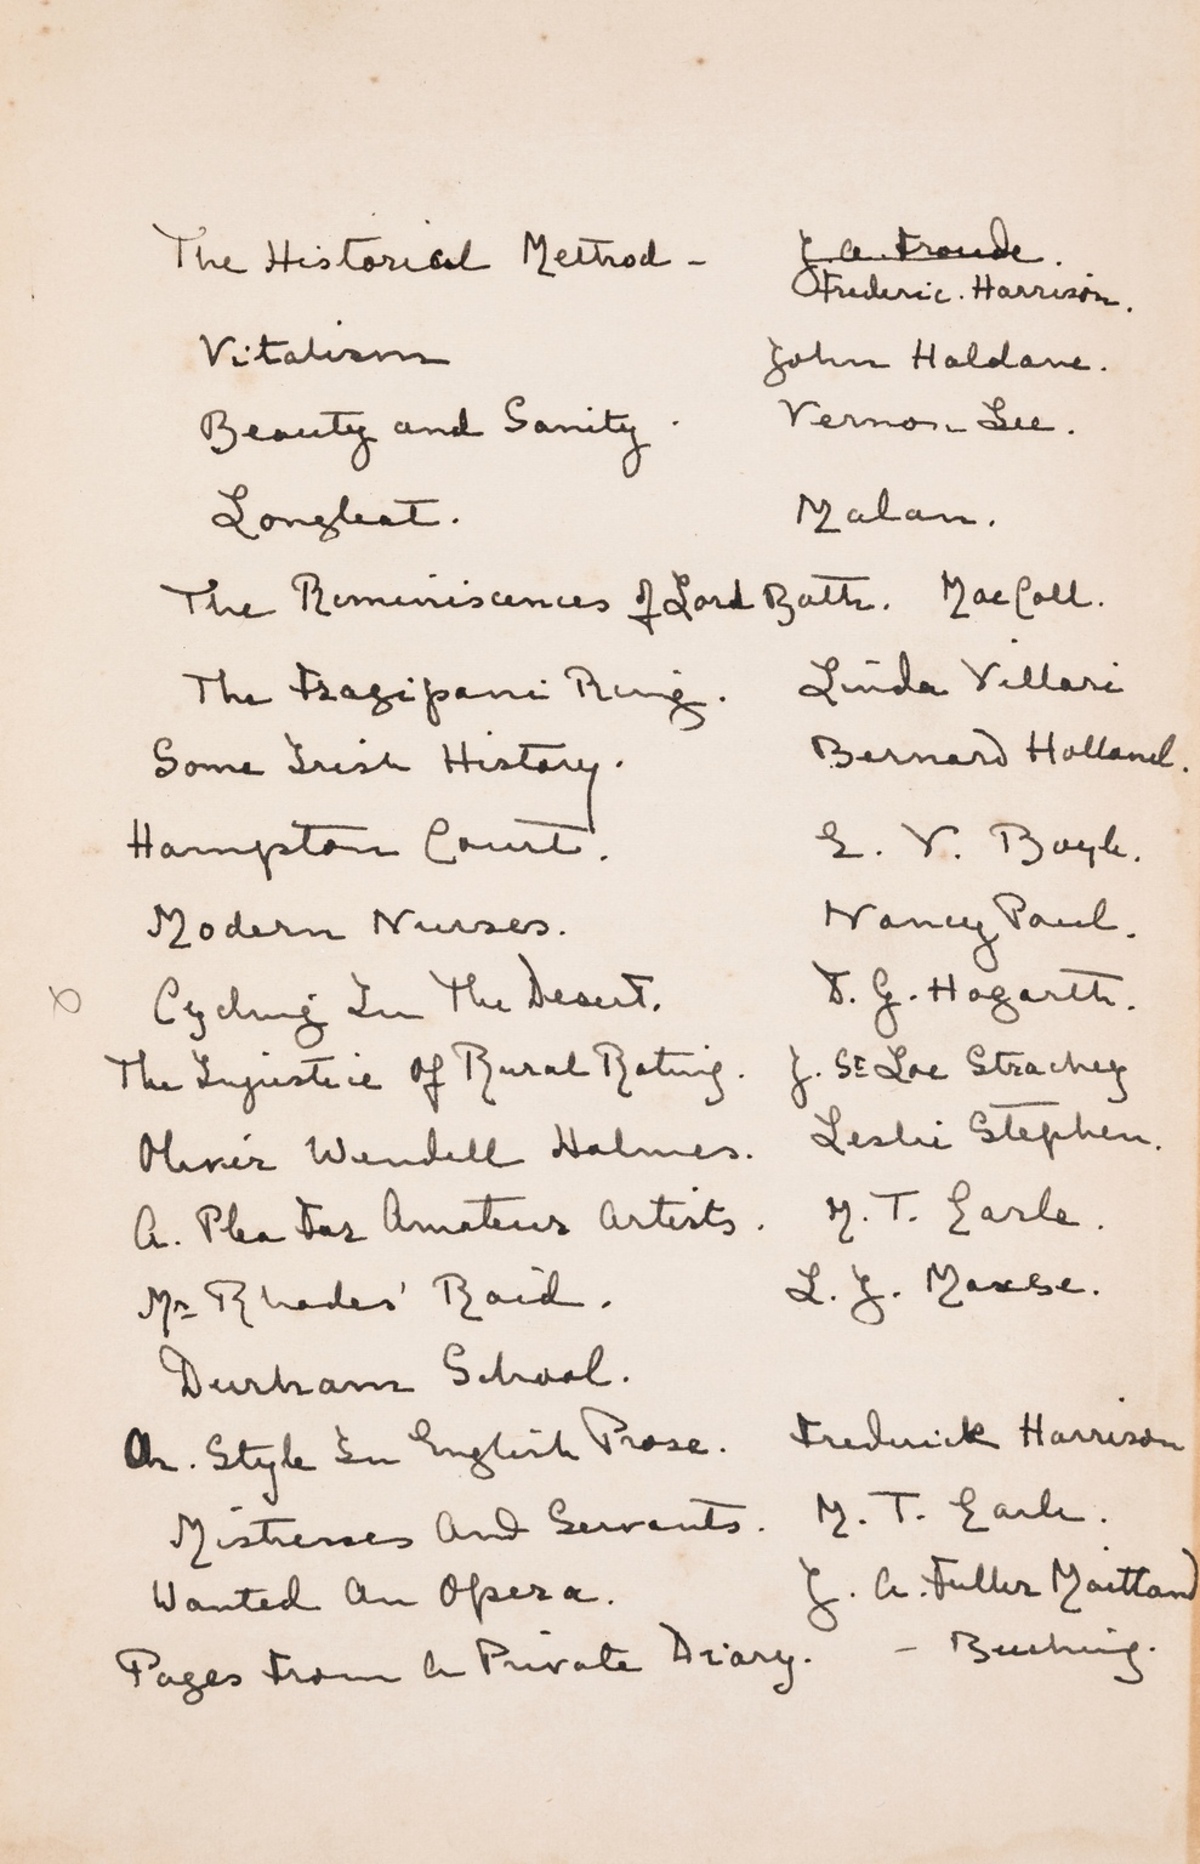 The Historical Method - J. A. Froude.
Frederic. Harrison.
Vitalism John Haldane.
Beauty and Sanity. Vernon Lee.
Longleat. Malan.
The Reminiscences of Lord Bath. MacColl.
The Fragipani Ring. Linda Villari
Some Irish History. Bernard Holland.
Hampton Court. E. V. Boyle.
Modern Nurses. Nancy Paul.
Cycling In The Desert. D. G. Hogarth.
The Injustice Of Rural Rating. J. St Loe Strachey
Oliver Wendell Holmes. Leslie Stephen.
A. Plea For Amateur Artists. M. T. Earle.
Mr Rhodes' Raid. L. J. Maxse.
Durham School.
On. Style In English Prose. Frederick Harrison
Mistresses And Servants. M. T. Earle.
Wanted An Opera. J. A. Fuller Maitland
Pages From A Private Diary. -